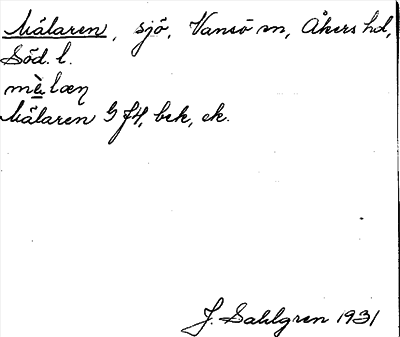 Mälaren, sjö, Vansö sn, Åkers hd,
Söd. l.
mè̱læṇ
Mälaren GJ4, bek, ek.
J. Sahlgren 1931